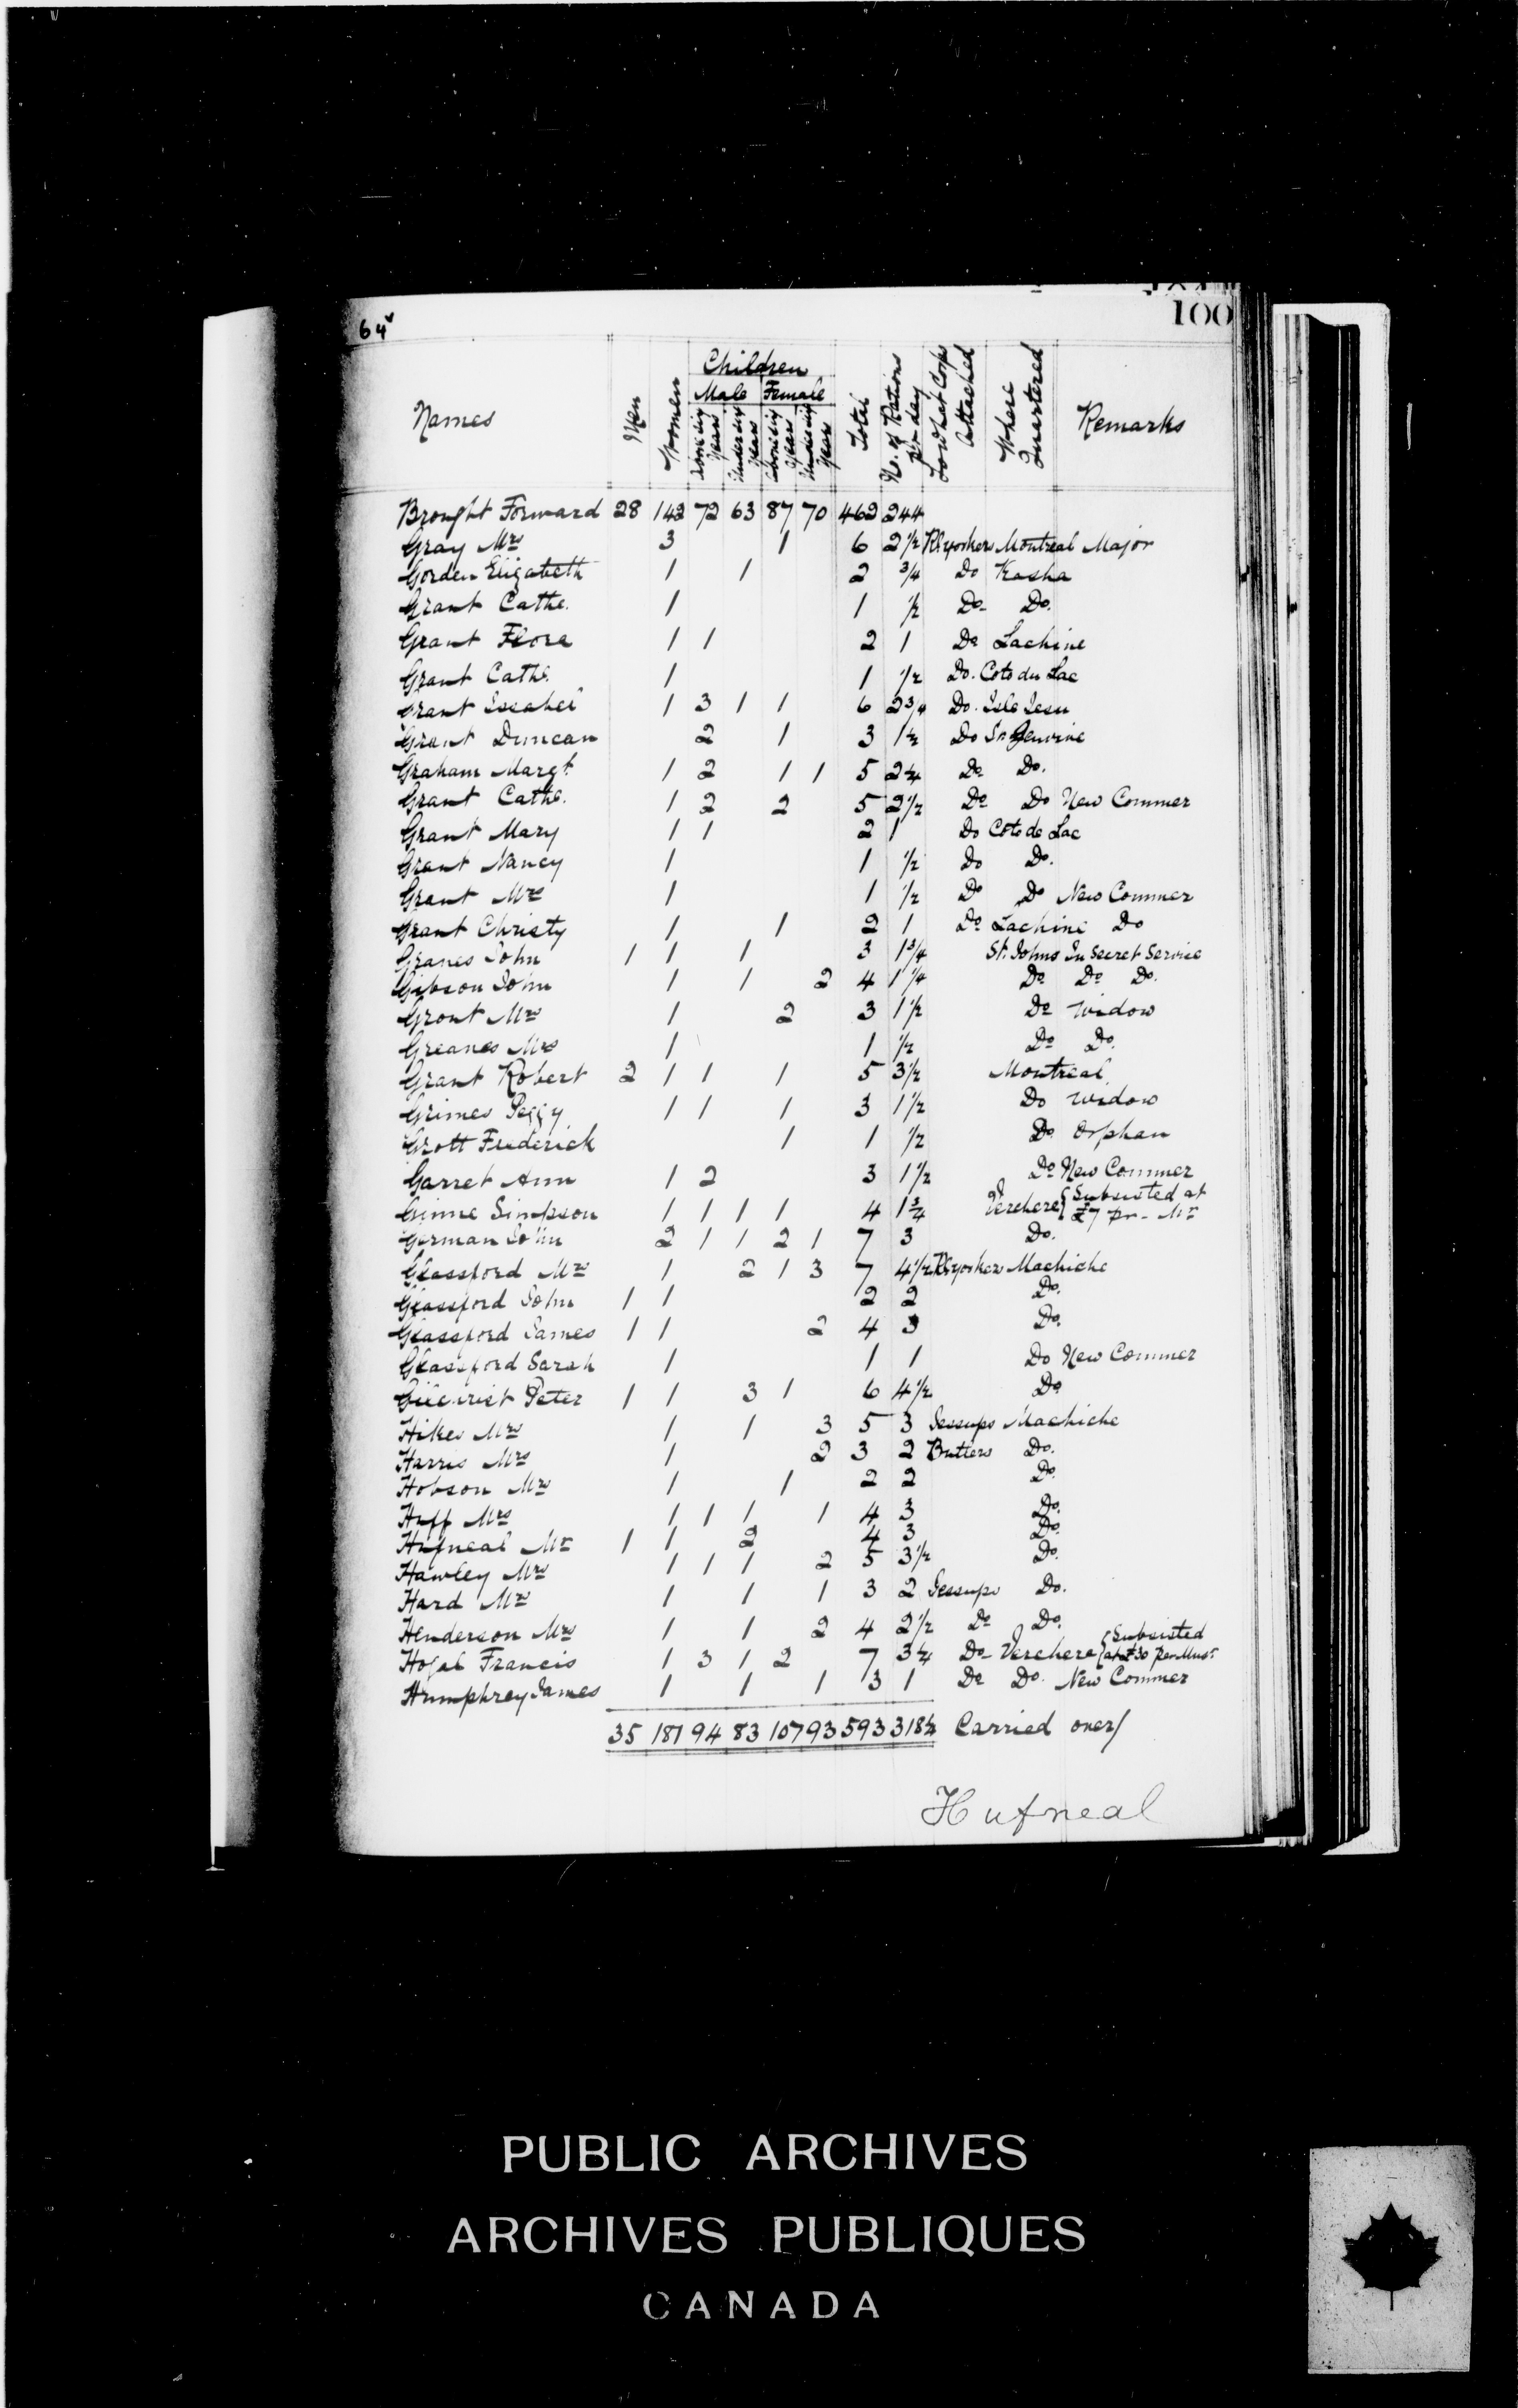 64v
100
Children
Male Female
Names Men Women Above six years Under six years Above six years Under six years Total No. of Rations pr day To what Corps Attached Where Quartered Remarks
Brought Forward 28 142 72 63 87 70 462 244
Gray Mrs 3 1 6 2½ Rl yorkers Montreal Major
Gorden Elizabeth 1 1 2 ¾ Do Kasha
Grant Cathe. 1 1 ½ Do Do.
Grant Flora 1 1 2 1 Do Lachine
Grant Cathe. 1 1 ½ Do. Coto du Lac
Grant Issabel 1 3 1 1 6 2¾ Do. Isle Jesu
Grant Duncan 2 1 3 1½ Do
Graham Margt. 1 2 1 1 5 2¼ Do Do.
Grant Cathe. 1 2 2 5 2½ Do Do New Commer
Grant Mary 1 1 2 1 Do Coto de Lac
Grant Nancy 1 1 ½ Do Do.
Grant Mrs 1 1 ½ Do Do New Commer
Grant Christy 1 1 2 1 Do Lachine Do
Granes John 1 1 1 3 1¾ St. Johns In Secret Service
Gibson John 1 1 2 4 1¼ Do Do Do.
Gront Mrs 1 2 3 1½ Do Widow
Greanes Mrs 1 1 ½ Do Do.
Grant Robert 2 1 1 1 5 3½ Montreal
Grimes Peggy 1 1 1 3 1½ Do Widow
Grott Frederick 1 1 ½ Do Orphan
Garret Ann 1 2 3 1½ Do New Commer
Ginne Simpson 1 1 1 1 4 1¾ Verchere { Subsisted at £7 pr
German John 2 1 1 2 1 7 3 Do.
Glassford Mrs 1 2 1 3 7 4½ Rl yorkers Machiche
Glassford John 1 1 2 2 Do.
Glassford James 1 1 2 4 3 Do.
Glassford Sarah 1 1 1 Do New Commer
Gilcirist Peter 1 1 3 1 6 4½ Do
Hikes Mrs 1 1 3 5 3 Jessups Machiche
Harris Mrs 1 2 3 2 Butlers Do.
Hobson Mrs 1 1 2 2 Do.
Huff Mrs 1 1 1 1 4 3 Do.
Hufneal Mr 1 1 2 4 3 Do.
Hawley Mrs 1 1 1 2 5 3½ Do.
Hard Mrs 1 1 1 3 2 Jessups Do.
Henderson Mrs 1 1 2 4 2½ Do Do.
Hogal Francis 1 3 1 2 7 3¼ Do Verchere { Subsisted at £30
Humphrey James 1 1 1 3 1 Do Do. New Commer
35 181 94 83 107 93 593 318¼ Carried over/
Hufneal
PUBLIC ARCHIVES
ARCHIVES PUBLIQUES
CANADA